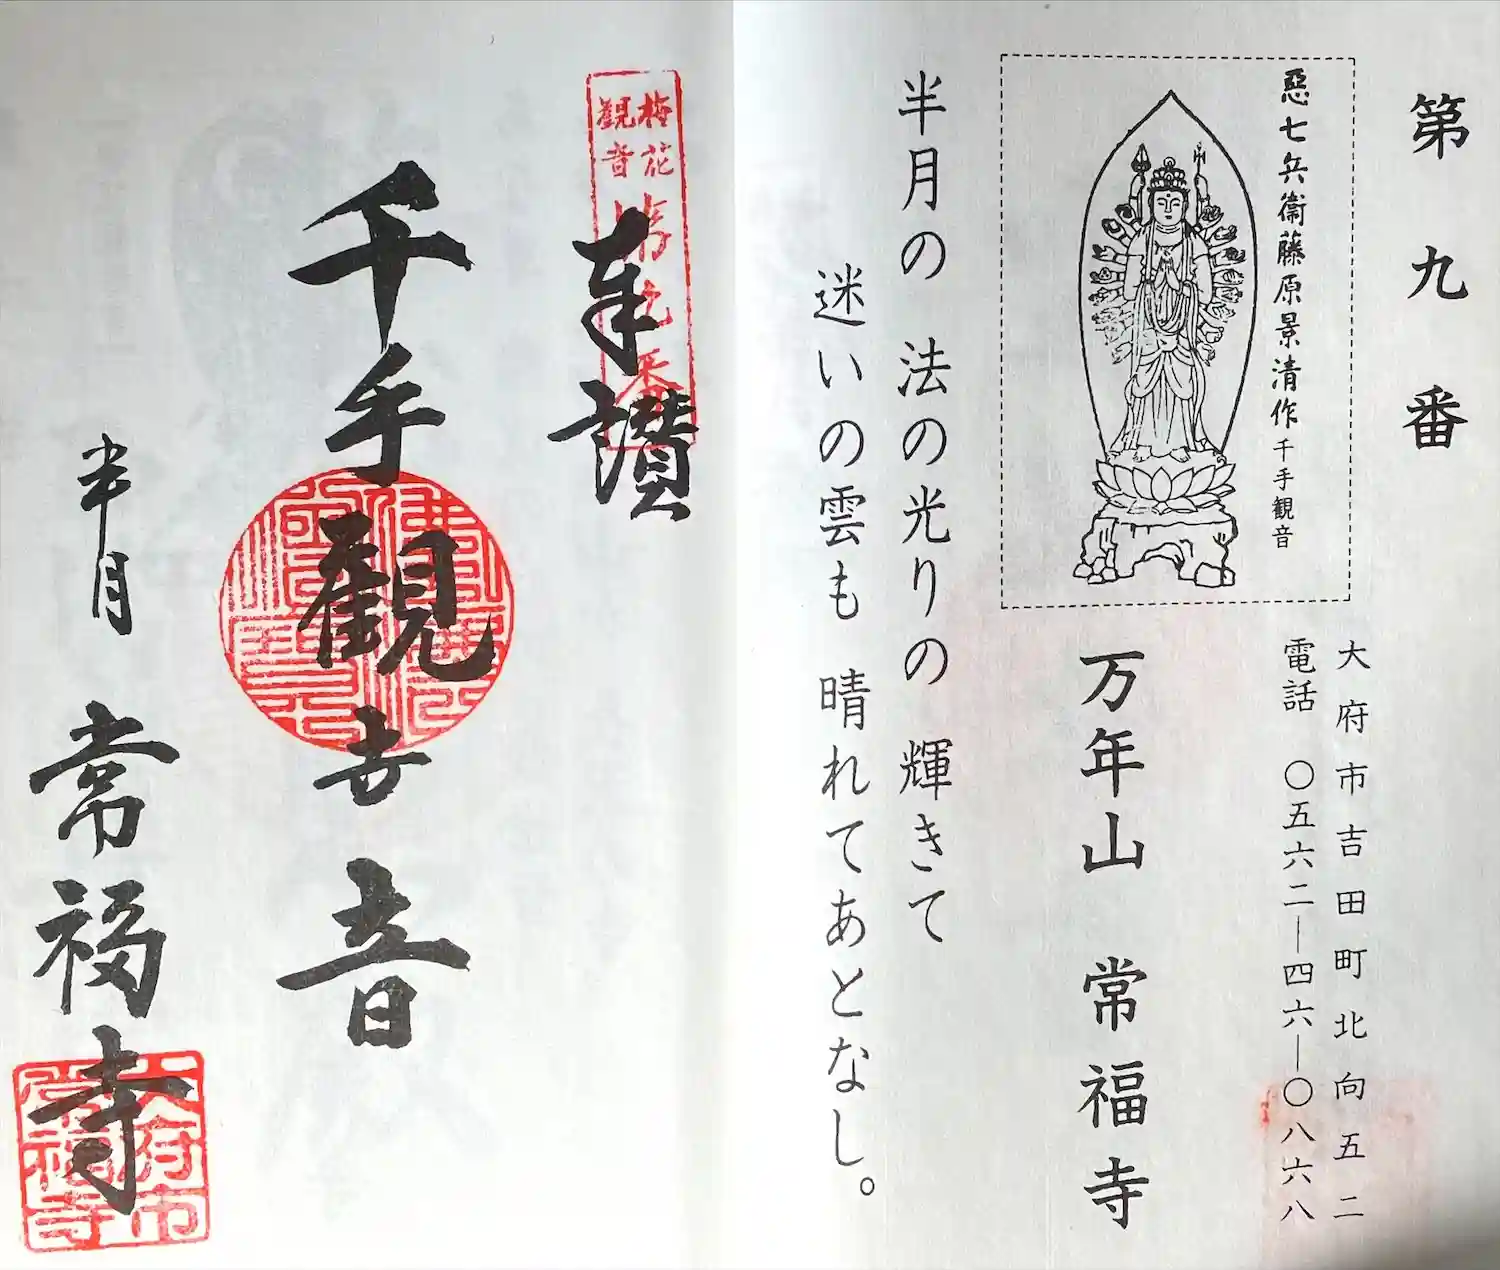 第九番
惡七兵衞藤原景清作千手観音
大府市吉田町北向五二
電話 〇五六二―四六―〇八六八
万年山 常福寺
半月の 法の光りの 輝きて
迷いの雲も 晴れてあとなし。
梅花
観音
奉讃
千手觀世音
半月 常福寺
大府市
常福寺